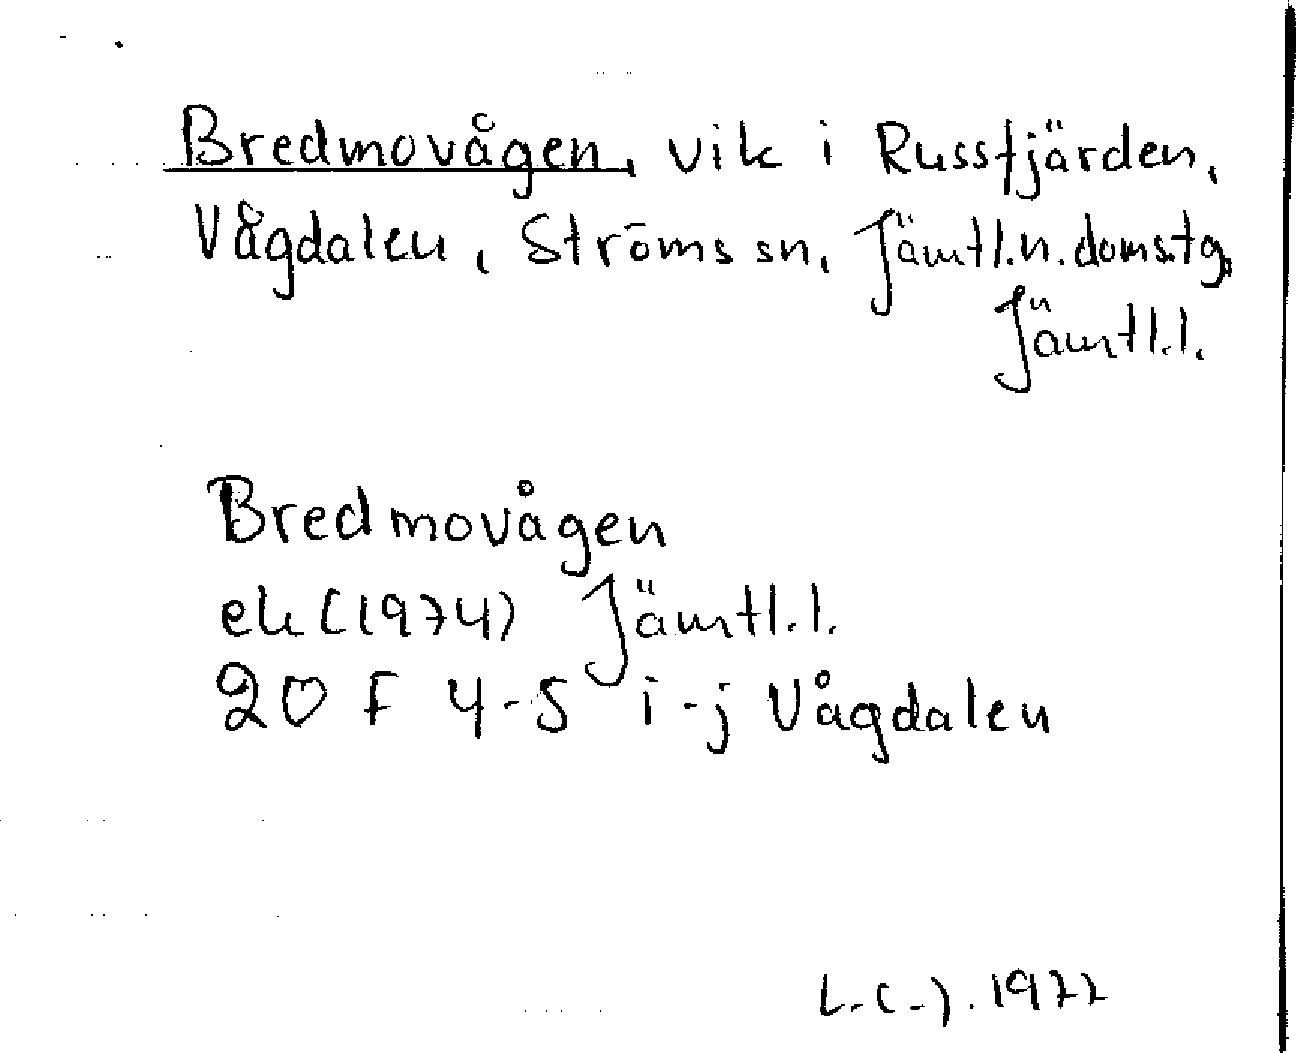 Bredmovågen, vik i Russfjärden,
Vågdalen, Ströms sn, Jämtl.n.domstg,
Jämtl.l.
Bredmovågen
ek (1974) Jämtl.l.
20 F 4-5 i-j Vågdalen
1977